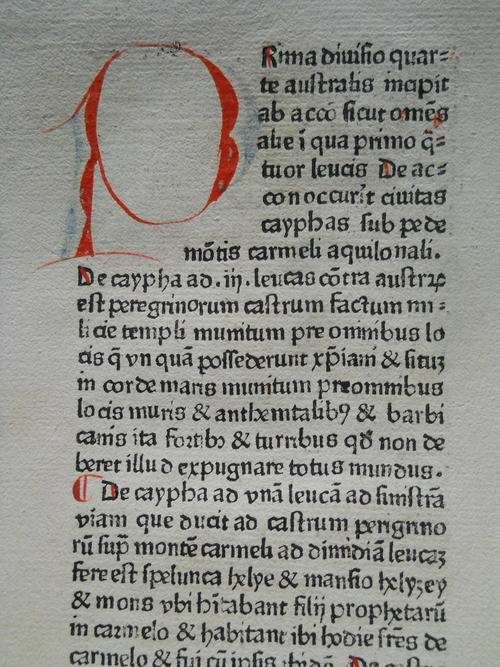 PRima diuisio quar=
te australis incipit
ab accō sicut omēs
alie ī qua primo q̄=
tuor leucis De ac=
con occurit ciuitas
cayphas sub pede
mōtis carmeli aquilonali.
De caypha ad .iij. leucas cōtra austrꝝ
est peregrinorum castrum factum mi=
licie templi munitum pre omnibus lo
cis q̄ vn quā possederunt xp̄iani & situꝫ
in corde maris munitum preomnibus
locis muris & anthemīalibꝰ & barbi
canis ita fortibꝰ & turribus qđ non de
beret illud expugnare totus mundus.
¶ De caypha ad vnā leucā ad sinistrā
viam que ducit ad castrum perigrino
rū sup̄ montē carmeli ad dimidiā leucaꝫ
fere est spelunca helye & mansio helyzey
& mons vbi hītabant filij prophetarū
in carmelo & habitant ibi hodie frēs de
carmelo & fui cū ipsis ibidē. De